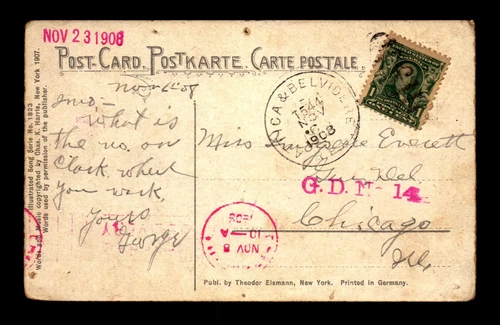 NOV 23 1908
POST-CARD. POSTKARTE. CARTE POSTALE.
Nov
What is
the no. on
Clark, where
you work,
Yours
George
Miss Everett
Gen Del
G.D.N- 14
Chicago
Ill.
& BELVIDERE
1908
NOV 8
10-A
1908
1
Illustrated Song Serie No. 1823
Words and Music copyrighted by Chas. K. Harris, New York 1907.
Words used by permission of the publisher.
Publ. by Theodor Eismann, New York. Printed in Germany.